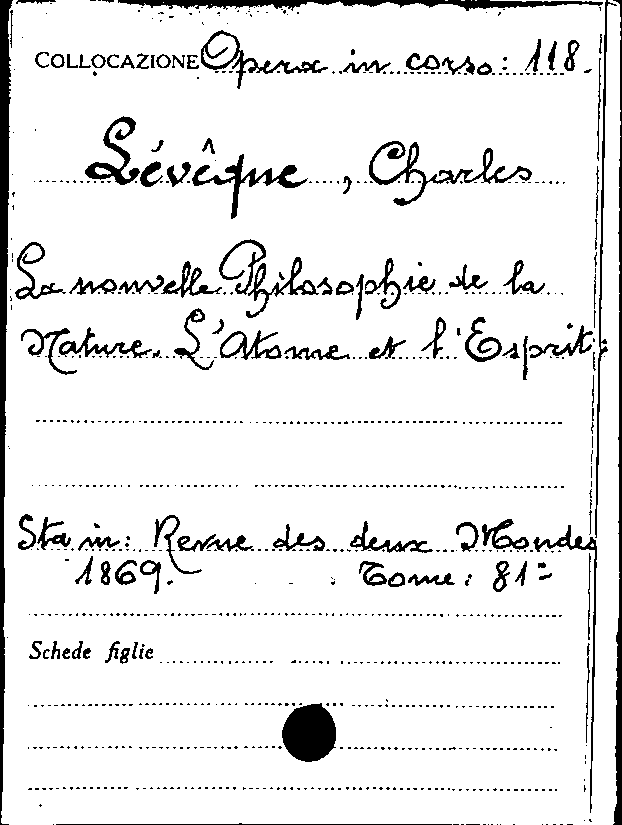 COLLOCAZIONE Opera in corso: 118.
Lévêque, Charles
La nouvelle Philosophie de la
Nature. L'Atome et l'Esprit:
Sta in: Revue des deux Mondes
1869. Tome: 81º
Schede figlie